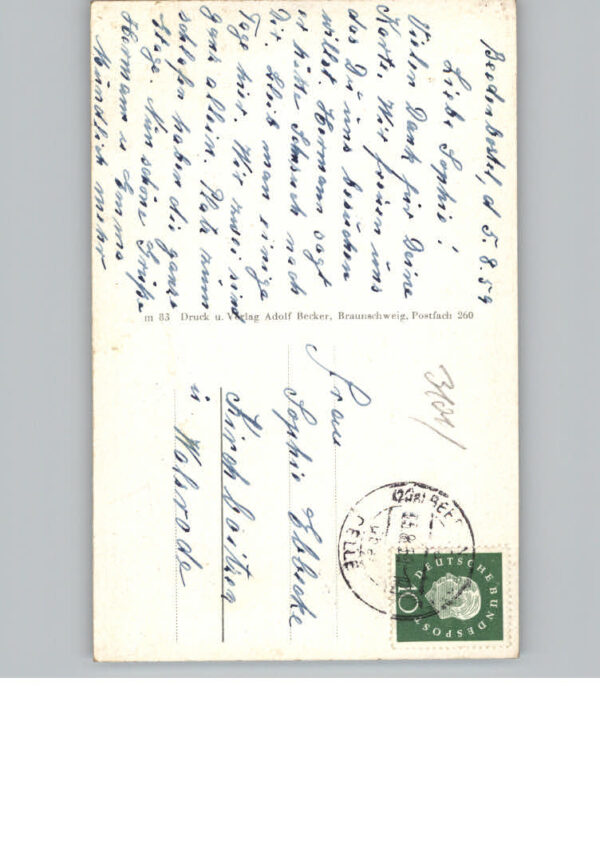 Beedenbostel, d 5.8.59
Liebe Sophie!
Vielen Dank für Deine
Karte. Wir freuen uns
das Du uns besuchen
willst. Hermann sagt
er hätte Sehnsucht nach
Dir. Bleib man einige
Tage hier. Wir zwei sind
ganz allein. Platz zum
schlafen haben die ganze
Etage. Nun schöne Grüße
Hermann u Emma
Mündlich mehr
m 83 Druck u. Verlag Adolf Becker, Braunschweig, Postfach 260
Frau
Sophie
Kirchboitzen
ü Walsrode
CELLE
10
DEUTSCHE BUNDESPOST